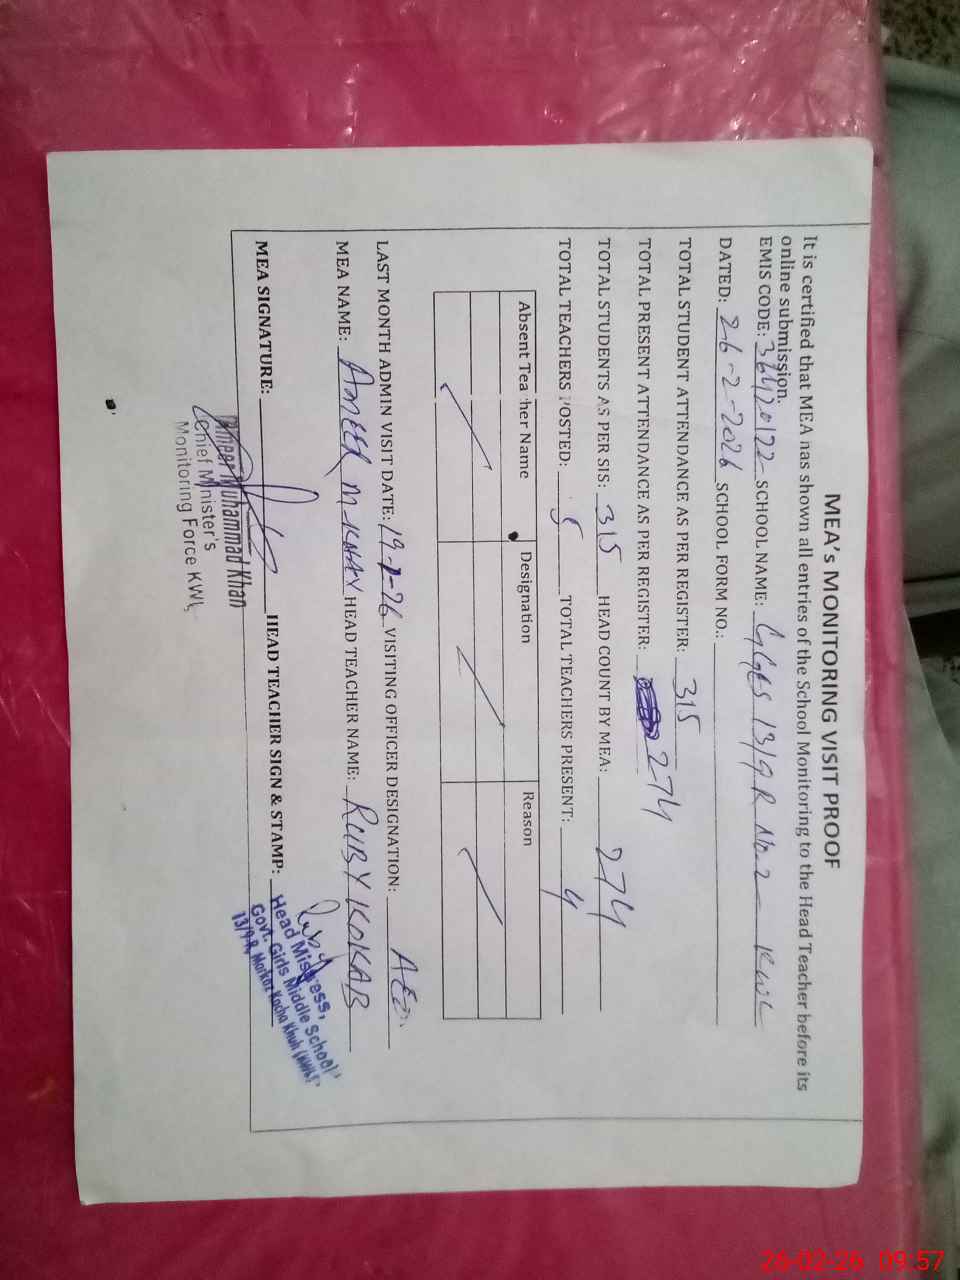 MEA's MONITORING VISIT PROOF
It is certified that MEA has shown all entries of the School Monitoring to the Head Teacher before its
online submission.
EMIS CODE: 36420122 SCHOOL NAME: GGES 13/9R No.2 KWL
DATED: 26-2-2026 SCHOOL FORM NO.:
TOTAL STUDENT ATTENDANCE AS PER REGISTER: 315
TOTAL PRESENT ATTENDANCE AS PER REGISTER: 274
TOTAL STUDENTS AS PER SIS: 315 HEAD COUNT BY MEA: 274
TOTAL TEACHERS POSTED: 5 TOTAL TEACHERS PRESENT: 4
Absent Teacher Name Designation Reason
LAST MONTH ADMIN VISIT DATE: 19-1-26 VISITING OFFICER DESIGNATION: AEO.
MEA NAME: AMEER M-KHAN HEAD TEACHER NAME: RUBY KOKAB
MEA SIGNATURE: HEAD TEACHER SIGN & STAMP:
Ruby
Head Mistress,
Govt. Girls Middle School
13/9-R, Markaz Kacha Khuh (KWL)
Ameer Muhammad Khan
Chief Minister's
Monitoring Force KWL
26-02-26 09:57